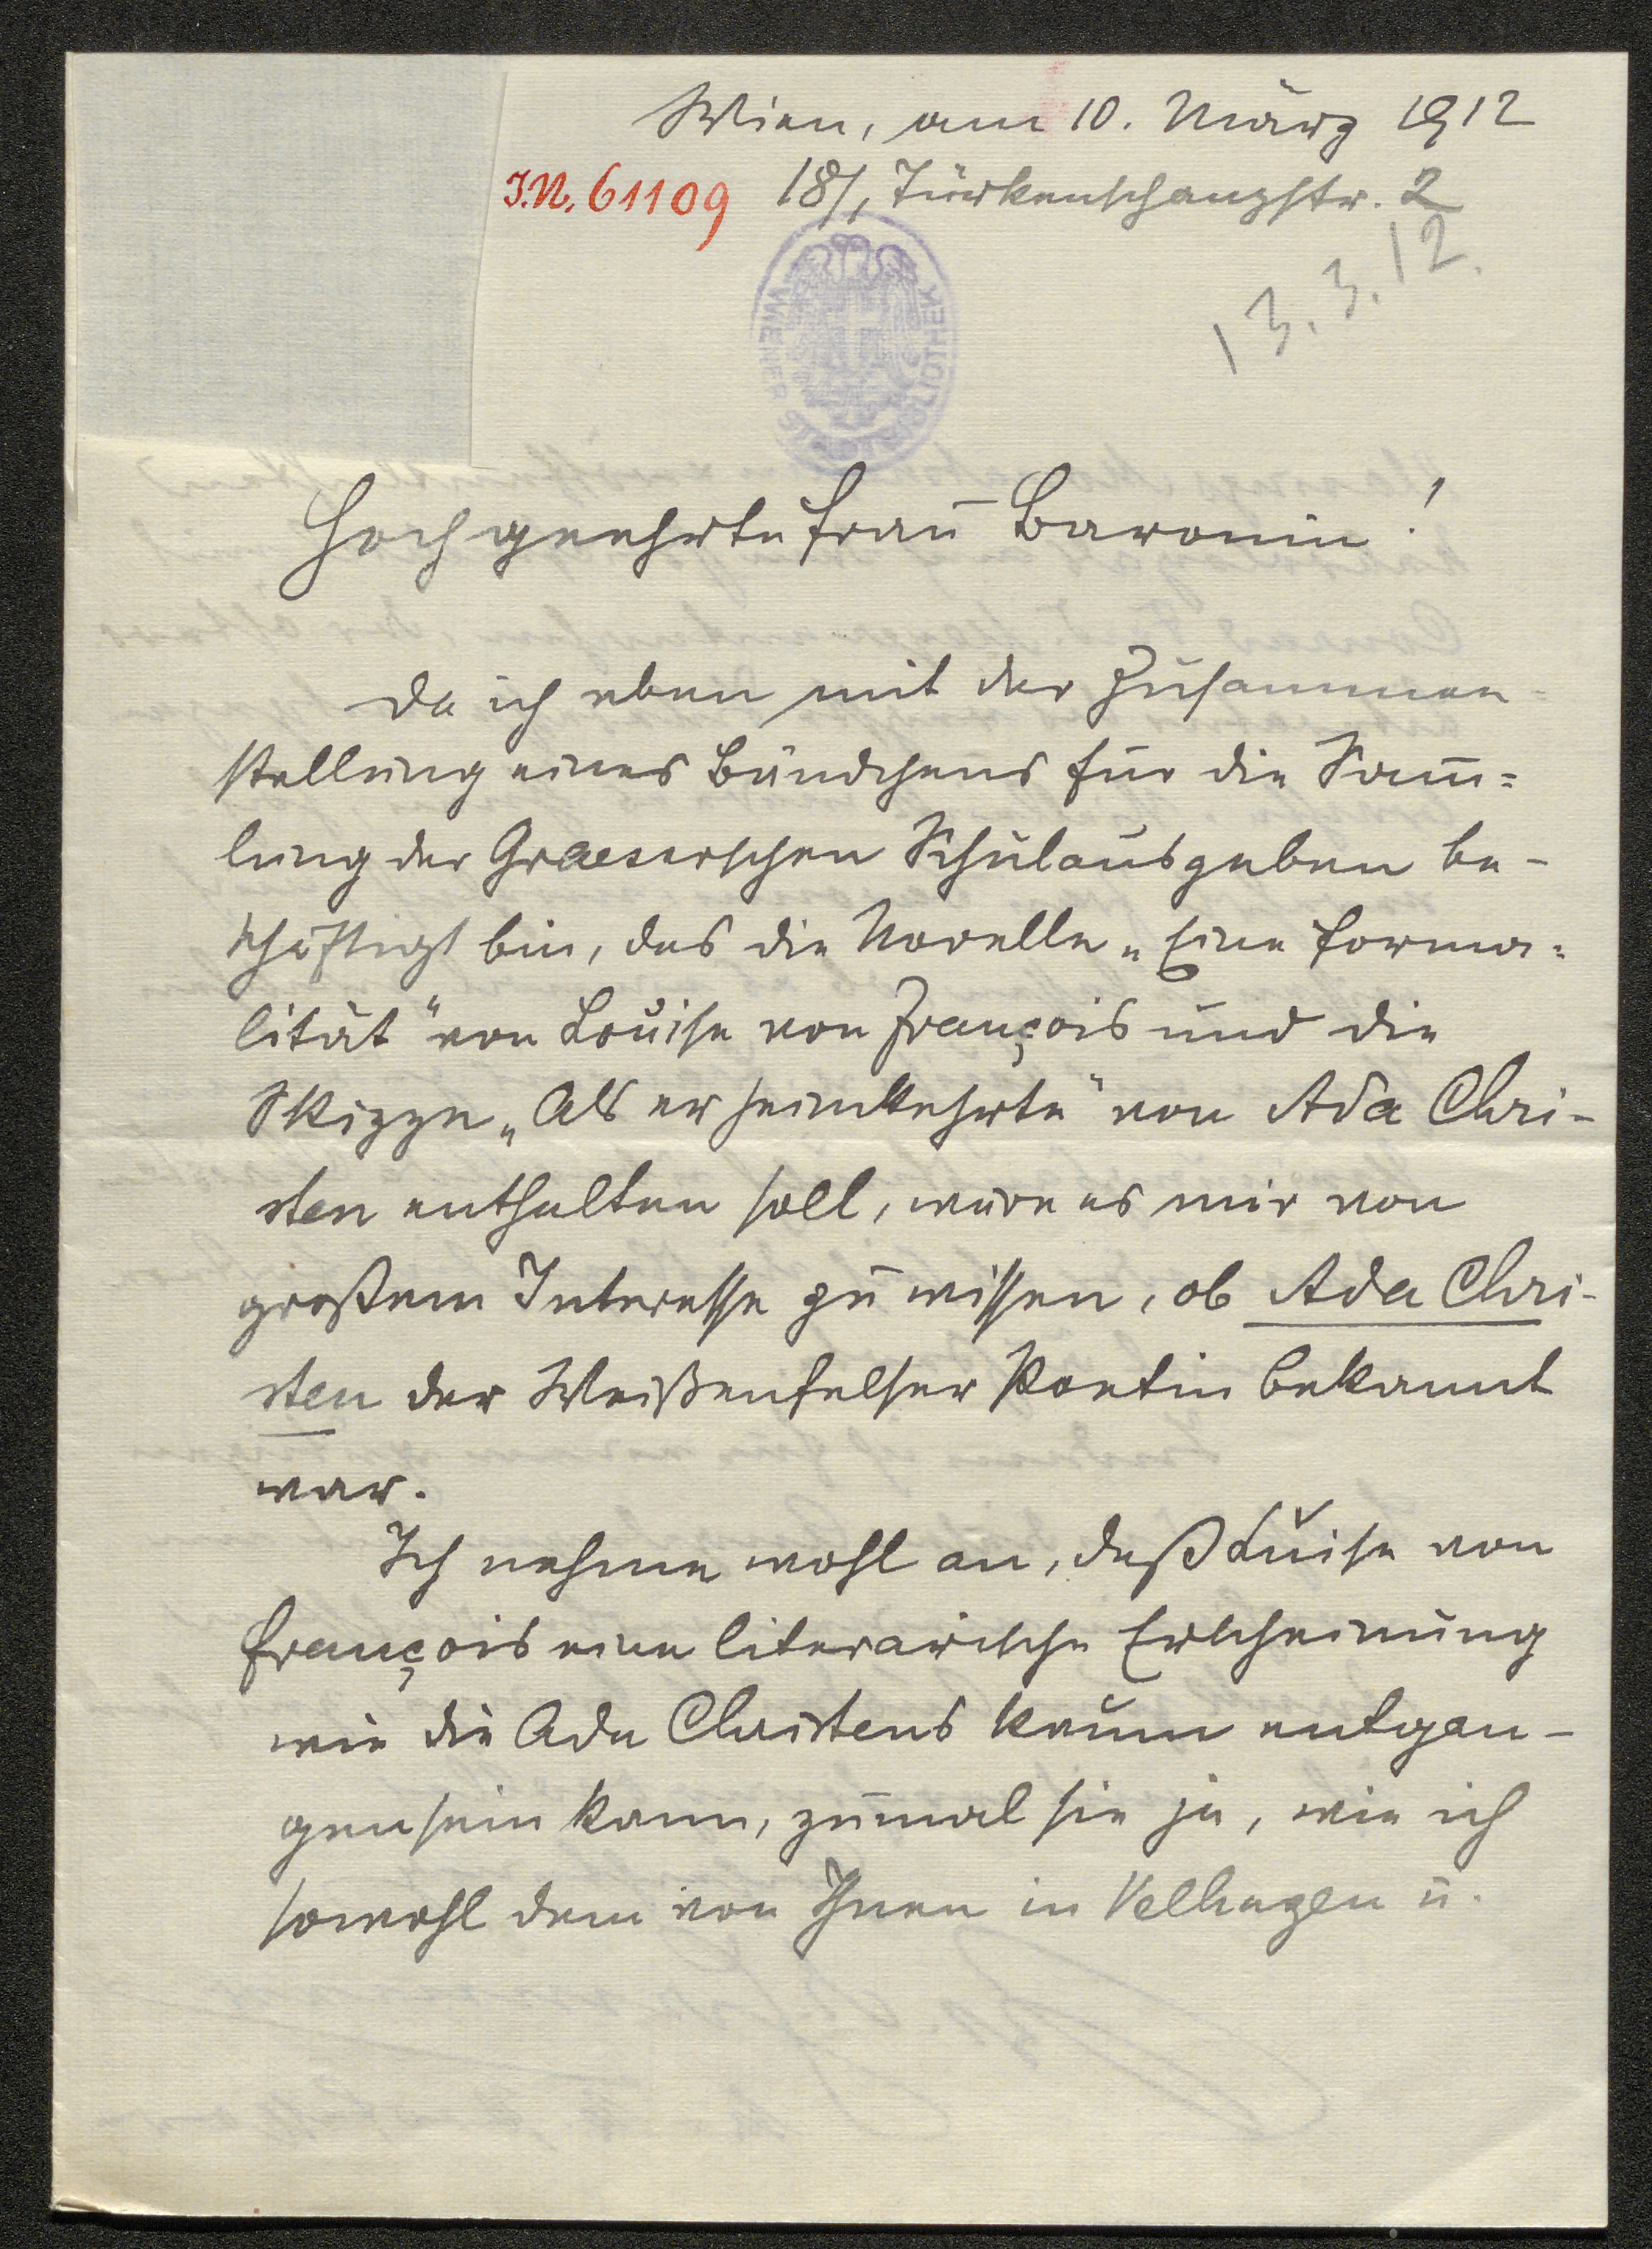 Wien, am 10. März 1912
J.N. 61109 18/1, Türkenschanzstr. 2
13.3.12.
WIENER STADTBIBLIOTHEK
Hochgeehrte Frau Baronin!
Da ich eben mit der Zusammen-
stellung eines Bändchens für die Sam̅-
lung der Graeserschen Schulausgaben be-
schäftigt bin, das die Novelle „Eine Forma-
lität“ von Louise von François und die
Skizze „Als er heimkehrte“ von Ada Chri-
sten enthalten soll, wäre es mir von
großem Interesse zu wissen, ob Ada Chri-
sten der Weißenfelser Poetin bekannt
war.
Ich nehme wohl an, daß Luise von
François eine literarische Erscheinung
wie die Ada Christens kaum entgan-
gen sein kann, zumal sie ja, wie ich
sowohl dem von Ihnen in Velhagen u.